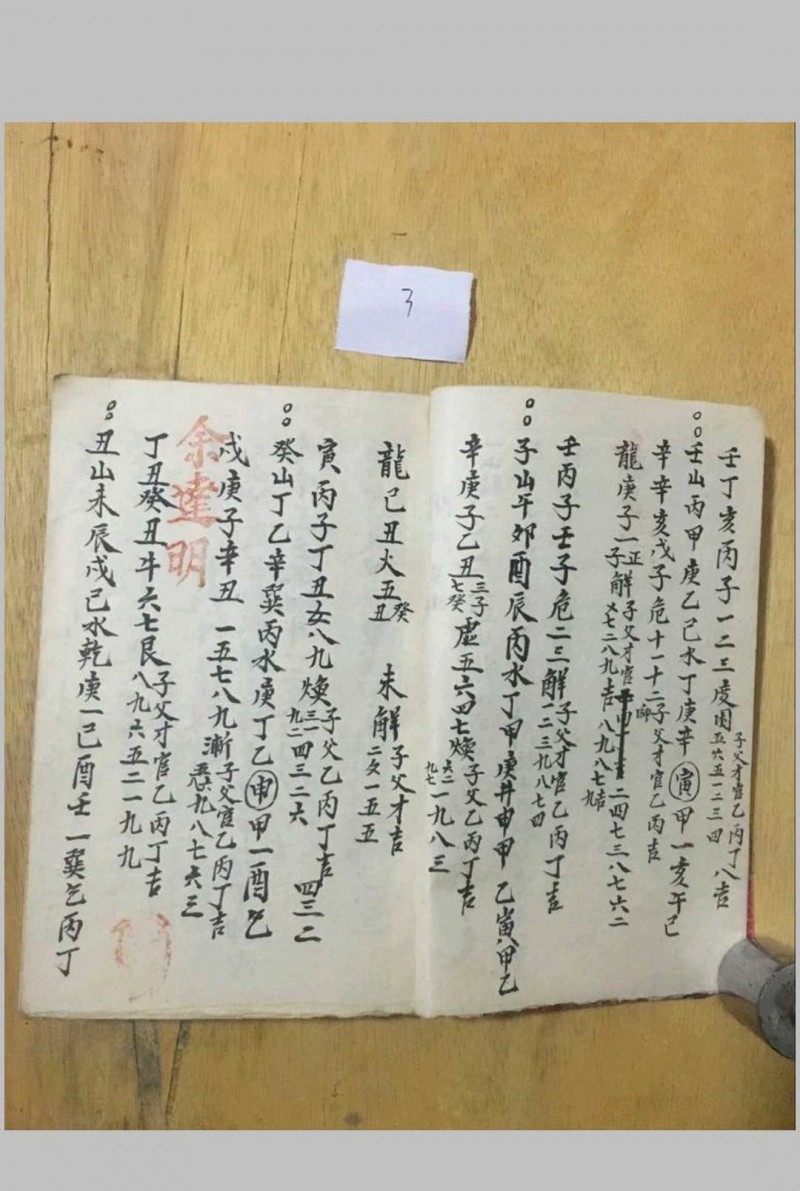 3
壬丁亥丙子一二三度困子父才官乙丙丁八吉
五六五一二三四
壬山丙甲庚乙己水丁庚辛寅甲一亥午己
辛辛亥戊子危十一十二子父才官乙丙吉
龍庚子一正子解子父才官
二七二八九吉八九八七吉九
二四七三八七六二
壬丙子壬子危二三解子父才官乙丙丁吉
一二三九八七四
子山午卯酉辰丙水丁甲庚井申甲乙寅八甲乙
辛庚子乙丑三子七癸虛五六四七煥子父乙丙丁吉
六二九七一九八三
龍己丑火五癸丑未解子父才吉
二女一五五
寅丙子丁丑女八九煥子父乙丙丁吉四三二
三一九二四三二六
癸山丁乙辛巽丙水庚丁乙申甲一酉乞
戌庚子辛丑一五七八九漸子父官乙丙丁吉
悪九八七六三
余達明
丁丑癸丑斗六七艮子父才官乙丙丁吉
八九六五二一九九
丑山未辰戌己水乾庚一己酉壬一巽乞丙丁